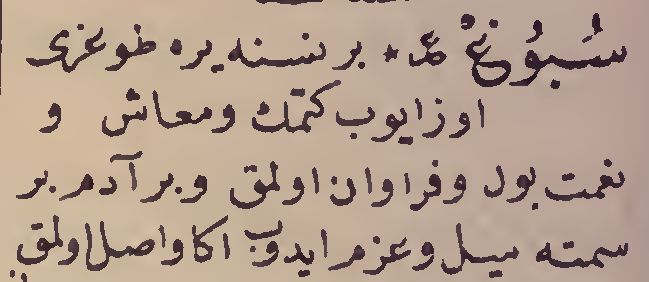 سُبُوغْ ع * بر نسنه یره طوغری
اوزایوب كتمك ومعاش و
نعمت بول وفراوان اولمق وبر آدم بر
سمته میل وعزم ایدوب اكا واصل اولمق